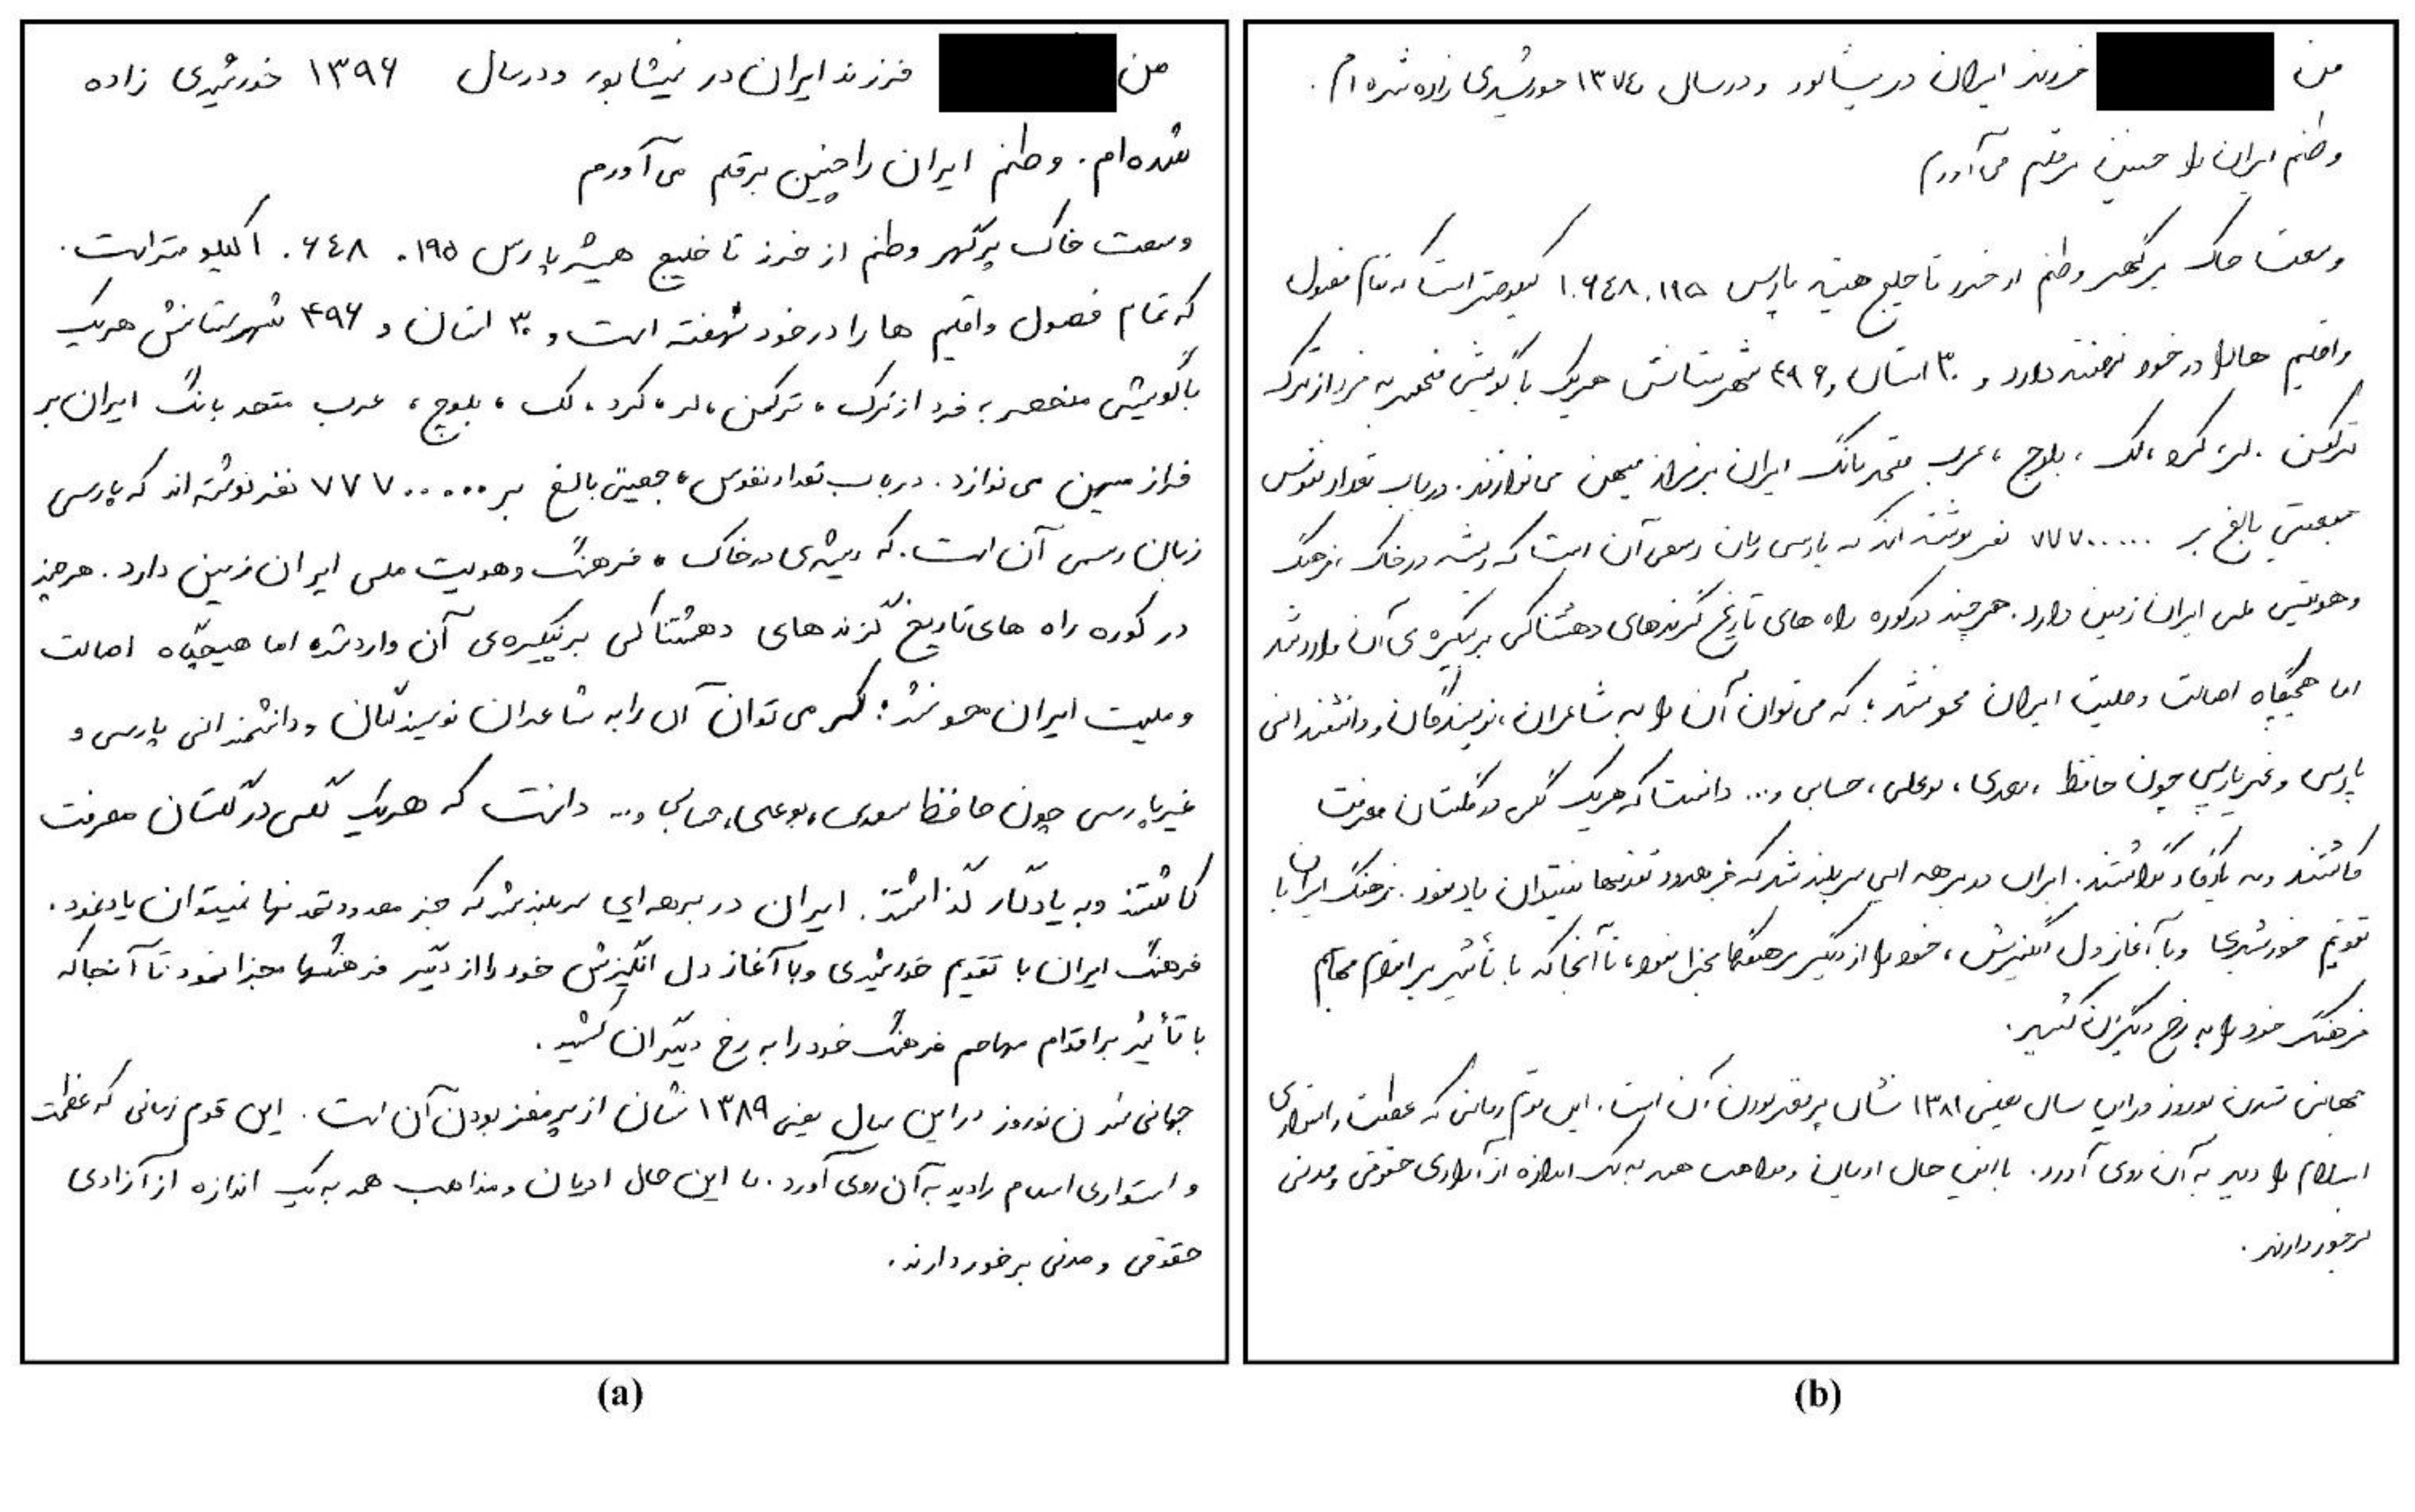 من فرزند ایران در نیشابور و در سال ۱۳۹۶ خورشیدی زاده
شده‌ام. وطنم ایران را چنین برقلم می‌آورم
وسعت خاک پرگهر وطنم از خزر تا خلیج همیشه پارس ۱۹۵. ۶۴۸. ۱ کیلومتر است.
که تمام فصول و اقلیم ها را در خود نهفته است و ۳۰ استان و ۴۹۶ شهرستانش هریک
با گویشی منحصر به فرد از ترک، ترکمن، لر، کرد، لک، بلوچ، عرب متحد بانگ ایران بر
فراز میهن می نوازد. در باب تعداد نفوس، جمعیتی بالغ بر ۷۷۷۰۰۰۰۰ نفر نوشته اند که پارسی
زبان رسمی آن است. که ریشه‌ی در خاک، فرهنگ و هویت ملی ایران زمین دارد. هرچند
در کوره راه های تاریخ گزندهای دهشتناکی بر پیکره‌ی آن وارد شد، اما هیچگاه اصالت
و ملیت ایران محو نشد؛ که می توان آن را به شاعران نویسندگان و دانشمندانی پارسی و
غیرپارسی چون حافظ، سعدی، بوعلی، حسابی و... دانست که هریک گلی در گلستان معرفت
کاشتند و به یادگار گذاشتند. ایران در برهه ایی سربلند شد که جز معدود تمدنها نمیتوان یاد نمود.
فرهنگ ایران با تقویم خورشیدی و با آغاز دل انگیزش خود را از دیگر فرهنگها مجزا نمود تا آنجا که
با تأثیر بر اقوام مهاجم فرهنگ خود را به رخ دیگران کشید.
جهانی شدن نوروز در این سال یعنی ۱۳۸۹ نشان از پرمغز بودن آن است. این قوم زمانی که عظمت
و استواری اسلام را دید به آن روی آورد. با این حال ادیان و مذاهب همه به یک اندازه از آزادی
حقوقی و مدنی برخوردارند.
(a)
من فرزند ایران در نیشابور و در سال ۱۳۷۴ خورشیدی زاده شده ام.
وطنم ایران را چنین برقلم می‌آورم
وسعت خاک پرگهر وطنم از خزر تا خلیج همیشه پارس ۱.۶۴۸.۱۹۵ کیلومتر است که تمام فصول
و اقلیم ها را در خود نهفته دارد و ۳۰ استان و ۴۹۶ شهرستانش هریک با گویشی منحصر به فرد از ترک
ترکمن. لر، کرد، لک، بلوچ، عرب متحد بانگ ایران بر فراز میهن می نوازند. در باب تعداد نفوس
جمعیتی بالغ بر ۷۷۷۰۰۰۰۰ نفر نوشته اند که پارسی زبان رسمی آن است که ریشه در خاک، فرهنگ
و هویتی ملی ایران زمین دارد. هرچند در کوره راه های تاریخ گزندهای دهشتناکی بر پیکره ی آن وارد شد
اما هیچگاه اصالت و ملیت ایران محو نشد؛ که می توان آن را به شاعران، نویسندگان و دانشمندانی
پارسی و غیرپارسی چون حافظ، سعدی، بوعلی، حسابی و... دانست که هریک گلی در گلستان معرفت
کاشتند و به یادگار گذاشتند. ایران در برهه ایی سربلند شد که جز معدود تمدنها نمیتوان یاد نمود. فرهنگ ایران با
تقویم خورشیدی و با آغاز دل انگیزش، خود را از دیگر فرهنگها مجزا نمود، تا آنجا که با تأثیر بر اقوام مهاجم
فرهنگ خود را به رخ دیگران کشید.
جهانی شدن نوروز در این سال یعنی ۱۳۸۹ نشان پرمغز بودن آن است. این قوم زمانی که عظمت و استواری
اسلام را دید به آن روی آورد. با این حال ادیان و مذاهب همه به یک اندازه از آزادی حقوقی و مدنی
برخوردارند.
(b)